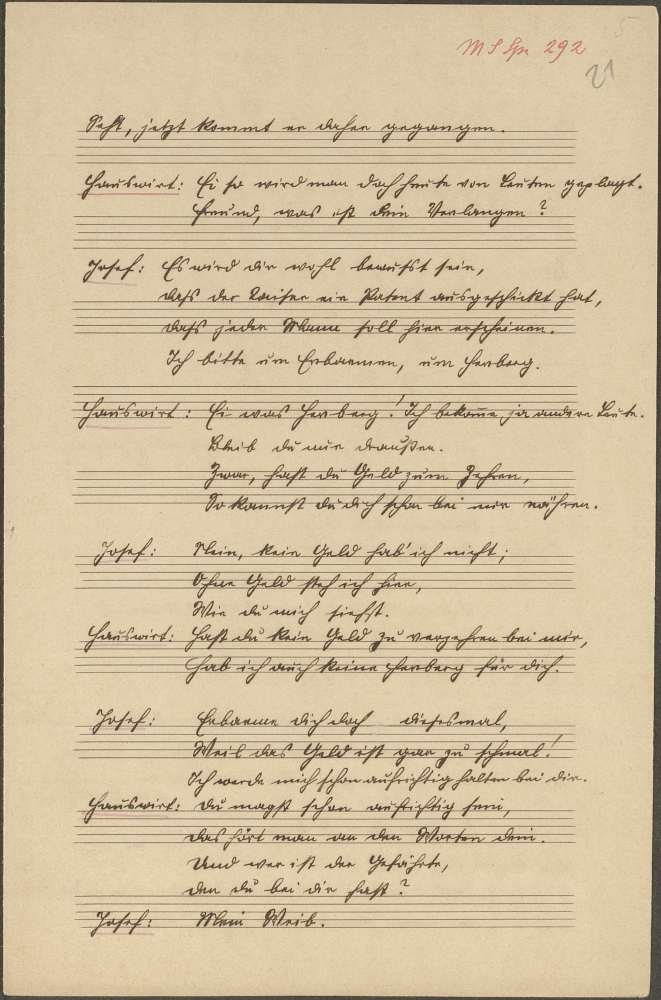 5
MS Spr 292
21
Seht, jetzt kommt er daher gegangen.
Hauswirt: Ei so wird man doch heute von Leuten geplagt.
Freund, was ist dein Verlangen?
Josef: Es wird dir wohl bewußt sein,
daß der Kaiser ein Patent ausgeschickt hat,
daß jeder Mann soll hier erscheinen.
Ich bitte um Erbarmen, um Herberg.
Hauswirt: Ei was Herberg! Ich bekomme ja andere Leute.
Bleib du nur draußen.
Zwar, hast du Geld zum Zehren,
So kannst du dich schon bei mir nähren.
Josef: Nein, kein Geld hab' ich nicht;
Ohne Geld steh ich hier,
Wie du mich siehst.
Hauswirt: Hast du kein Geld zu verzehren bei mir,
Hab ich auch keine Herberg für dich.
Josef: Erbarme dich doch diesesmal,
Weil das Geld ist gar zu schmal!
Ich werde mich schon aufrichtig halten bei dir.
Hauswirt: Du magst schon aufrichtig sein,
das hört man an den Worten dein.
Und wer ist der Gefährte,
den du bei dir hast?
Josef: Mein Weib.